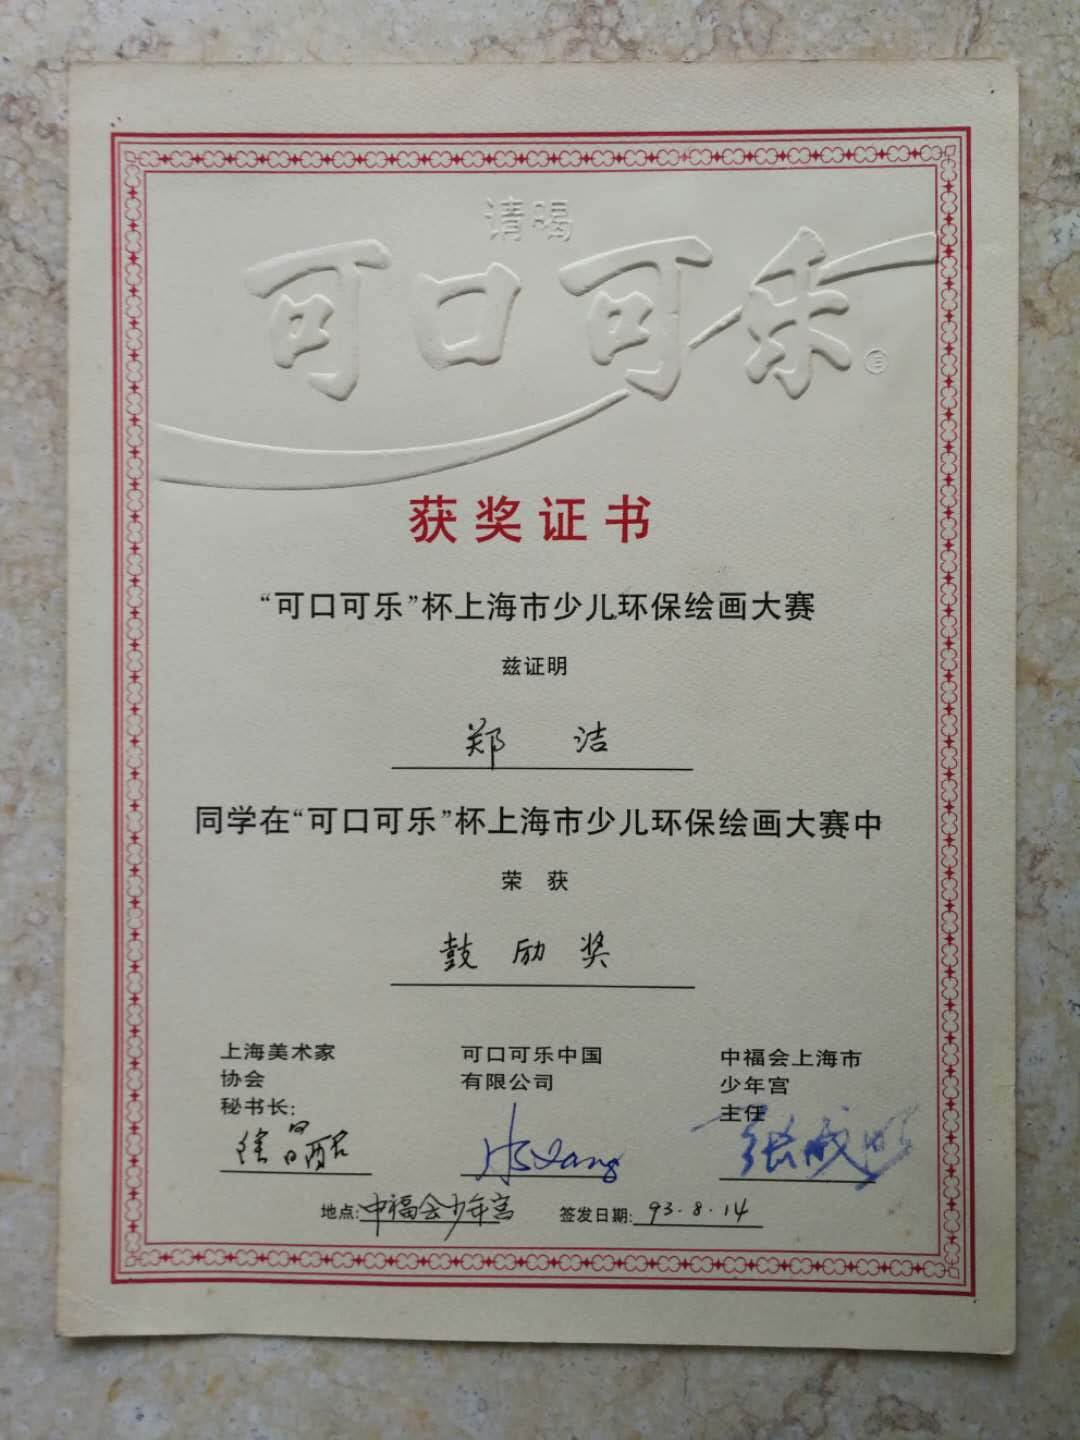 请喝
可口可乐
获奖证书
“可口可乐”杯上海市少儿环保绘画大赛
兹证明
郑 洁
同学在“可口可乐”杯上海市少儿环保绘画大赛中
荣 获
鼓励奖
上海美术家
协会
秘书长:
可口可乐中国
有限公司
中福会上海市
少年宫
主任
地点:中福会少年宫
签发日期:93.8.14